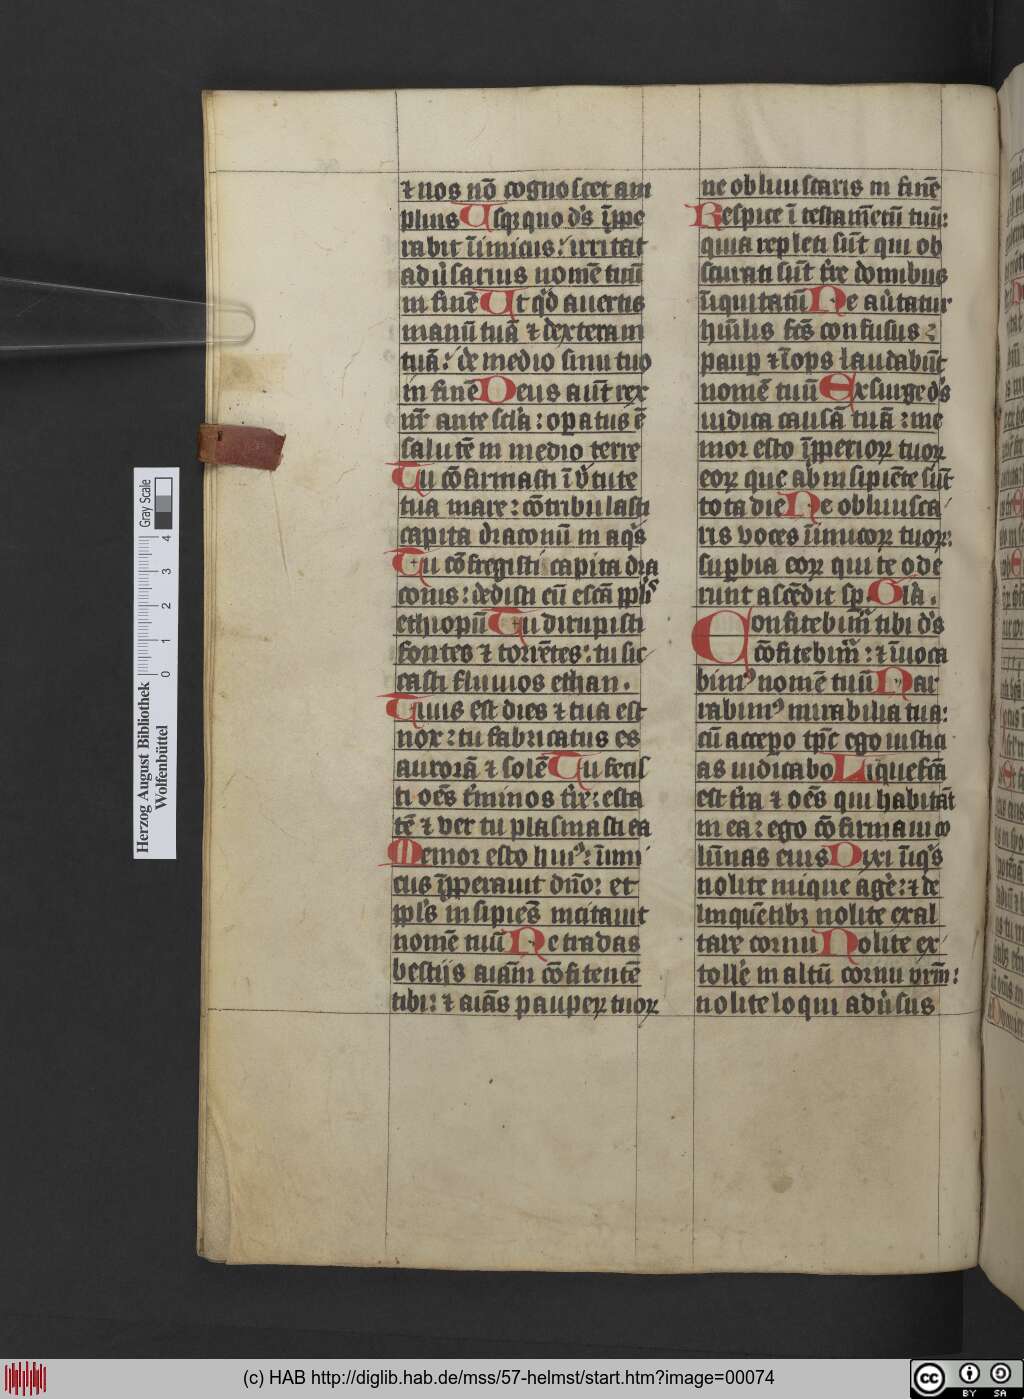 ⁊ nos nō cognoscet am
plius Usqꝫ quo dꝰs īppe
rabit īimicus: irritat
adūsarius nomē tuū
in finē Ut qͥd auertis
manū tuā ⁊ dexteram
tuā: de medio sinu tuo
in finē Deus aūt rex
nr̄ ante scl̄a: opatus ē
salutē in medio terre
Tu cōfirmasti ī v̄tute
tua mare: cōtribulasti
capita draconū in aqͥs
Tu cōfregisti capita dra
conis: dedisti eū escā ppl̄is
ethiopū Tu dirupisti
fontes ⁊ torrētes: tu sic
casti fluuios ethan.
Tuus est dies ⁊ tua est
nox: tu fabricatus es
aurorā ⁊ solē Tu fecis
ti oēs t̄minos t̄re: esta
tē ⁊ ver tu plasmasti ea
Memor esto huiꝰ: īimi
cus īpperauit dn̄o: et
ppl̄s insipiēs incitauit
nomē tuū Ne tradas
bestijs aiām cōfitentē
tibi: ⁊ aiās pauperꝝ tuoꝝ
ne obliuiscaris in finē
Respice ī testamētū tuū:
quia repleti sūt qui ob
scurati sūt t̄re domibus
īiquitatū Ne aūtatur
hūilis fc̄s confusus:
paup ⁊ īops laudabūt
nomē tuū Exsurge dꝰs
iudica causā tuā: me
mor esto īpperioꝝ tuoꝝ
eoꝝ que ab insipiēte sūt
tota die Ne obliuisca
ris voces īimicoꝝ tuoꝝ:
supbia eoꝝ qui te ode
runt ascēdit sp. Gl̄a.
Confitebimꝰ tibi dꝰs
cōfitebimꝰ: ⁊ īuoca
bimꝰ nomē tuū Nar
rabimꝰ mirabilia tua:
cū accepo tp̄c ego iustici
as iudicabo Liquefcā
est t̄ra ⁊ oēs qui habitāt
in ea: ego cōfirmaui co
lūnas eius Dixi īiqͥs
nolite inique agē: ⁊ de
linquētibꝫ nolite exal
tare cornu Nolite ex
tollē in altū cornu vrm̄:
nolite loqui adūsus
Gray Scale
0 1 2 3 4
Herzog August Bibliothek
Wolfenbüttel
(c) HAB http://diglib.hab.de/mss/57-helmst/start.htm?image=00074
cc BY SA